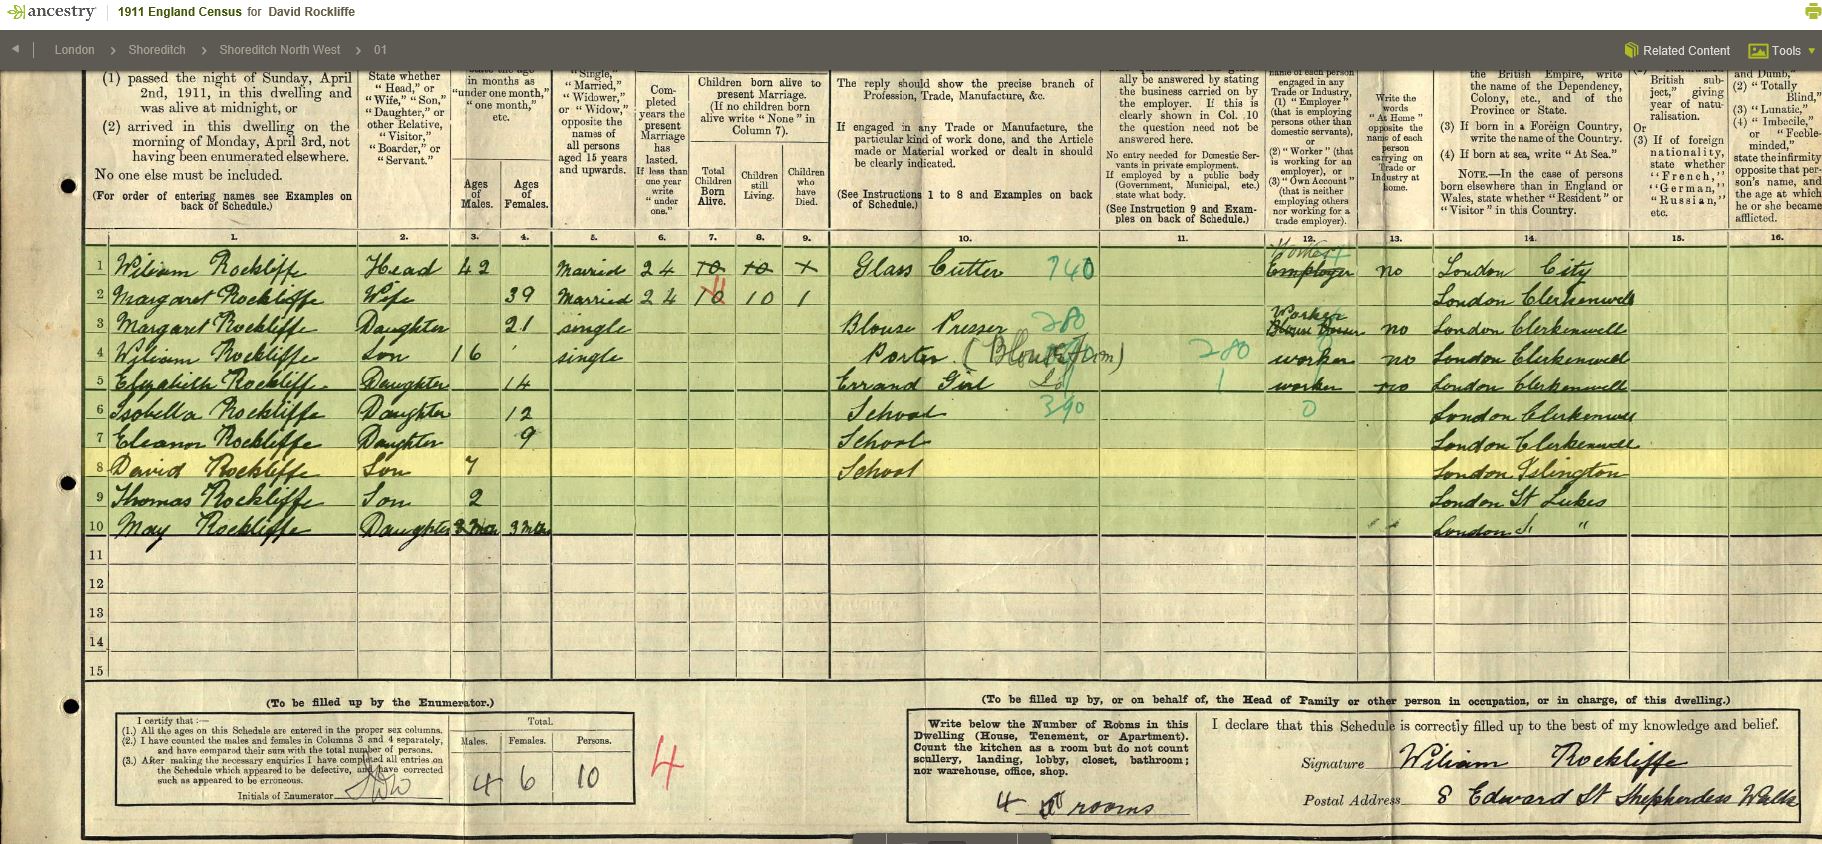 ancestry 1911 England Census for David Rockliffe
London > Shoreditch > Shoreditch North West > 01
Related Content Tools
(1) passed the night of Sunday, April 2nd, 1911, in this dwelling and was alive at midnight, or
(2) arrived in this dwelling on the morning of Monday, April 3rd, not having been enumerated elsewhere.
No one else must be included.
(For order of entering names see Examples on back of Schedule.)
State whether "Head," or "Wife," "Son," "Daughter," or other Relative, "Visitor," "Boarder," or "Servant."
in months as "under one month," "one month," etc.
Ages of Males.
Ages of Females.
"Single," "Married," "Widower," or "Widow," opposite the names of all persons aged 15 years and upwards.
Completed years the present Marriage has lasted. If less than one year write "under one."
Children born alive to present Marriage. (If no children born alive write "None" in Column 7).
Total Children Born Alive.
Children still Living.
Children who have Died.
The reply should show the precise branch of Profession, Trade, Manufacture, &c.
If engaged in any Trade or Manufacture, the particular kind of work done, and the Article made or Material worked or dealt in should be clearly indicated.
(See Instructions 1 to 8 and Examples on back of Schedule.)
ally be answered by stating the business carried on by the employer. If this is clearly shown in Col. 10 the question need not be answered here.
No entry needed for Domestic Servants in private employment. If employed by a public body (Government, Municipal, etc.) state what body.
(See Instruction 9 and Examples on back of Schedule.)
name of each person engaged in any Trade or Industry, (1) "Employer" (that is employing persons other than domestic servants), or (2) "Worker" (that is working for an employer), or (3) "Own Account" (that is neither employing others nor working for a trade employer).
Write the words "At Home" opposite the name of each person carrying on Trade or Industry at home.
the British Empire, write the name of the Dependency, Colony, etc., and of the Province or State.
(3) If born in a Foreign Country, write the name of the Country.
(4) If born at sea, write "At Sea."
NOTE.—In the case of persons born elsewhere than in England or Wales, state whether "Resident" or "Visitor" in this Country.
British subject," giving year of naturalisation.
Or
(3) If of foreign nationality, state whether "French," "German," "Russian," etc.
and Dumb,"
(2) "Totally Blind,"
(3) "Lunatic,"
(4) "Imbecile," or "Feeble-minded," state the infirmity opposite that person's name, and the age at which he or she became afflicted.
1. 2. 3. 4. 5. 6. 7. 8. 9. 10. 11. 12. 13. 14. 15. 16.
1 Wiliam Rockliffe Head 42 Married 24 10 10 Glass Cutter 740 Worker Employer no London City
2 Margaret Rockliffe Wife 39 Married 24 10 11 10 1 London Clerkenwell
3 Margaret Rockliffe Daughter 21 single Blouse Presser 280 Worker no London Clerkenwell
4 Wiliam Rockliffe Son 16 single Porter (Blouse Firm) 280 worker no London Clerkenwell
5 Elizabeth Rockliffe Daughter 14 Errand Girl Do 1 worker no London Clerkenwell
6 Isobella Rockliffe Daughter 12 School 390 0 London Clerkenwell
7 Eleanor Rockliffe Daughter 9 School London Clerkenwell
8 David Rockliffe Son 7 School London Islington
9 Thomas Rockliffe Son 2 London St Lukes
10 May Rockliffe Daughter 3 mths London St "
11
12
13
14
15
(To be filled up by the Enumerator.)
I certify that :—
(1.) All the ages on this Schedule are entered in the proper sex columns.
(2.) I have counted the males and females in Columns 3 and 4 separately, and have compared their sum with the total number of persons.
(3.) After making the necessary enquiries I have completed all entries on the Schedule which appeared to be defective, and have corrected such as appeared to be erroneous.
Initials of Enumerator
Total.
Males. Females. Persons.
4 6 10
4
(To be filled up by, or on behalf of, the Head of Family or other person in occupation, or in charge, of this dwelling.)
Write below the Number of Rooms in this Dwelling (House, Tenement, or Apartment). Count the kitchen as a room but do not count scullery, landing, lobby, closet, bathroom; nor warehouse, office, shop.
4 rooms
I declare that this Schedule is correctly filled up to the best of my knowledge and belief.
Signature Wiliam Rockliffe
Postal Address 8 Edward St Shepherdess Walk